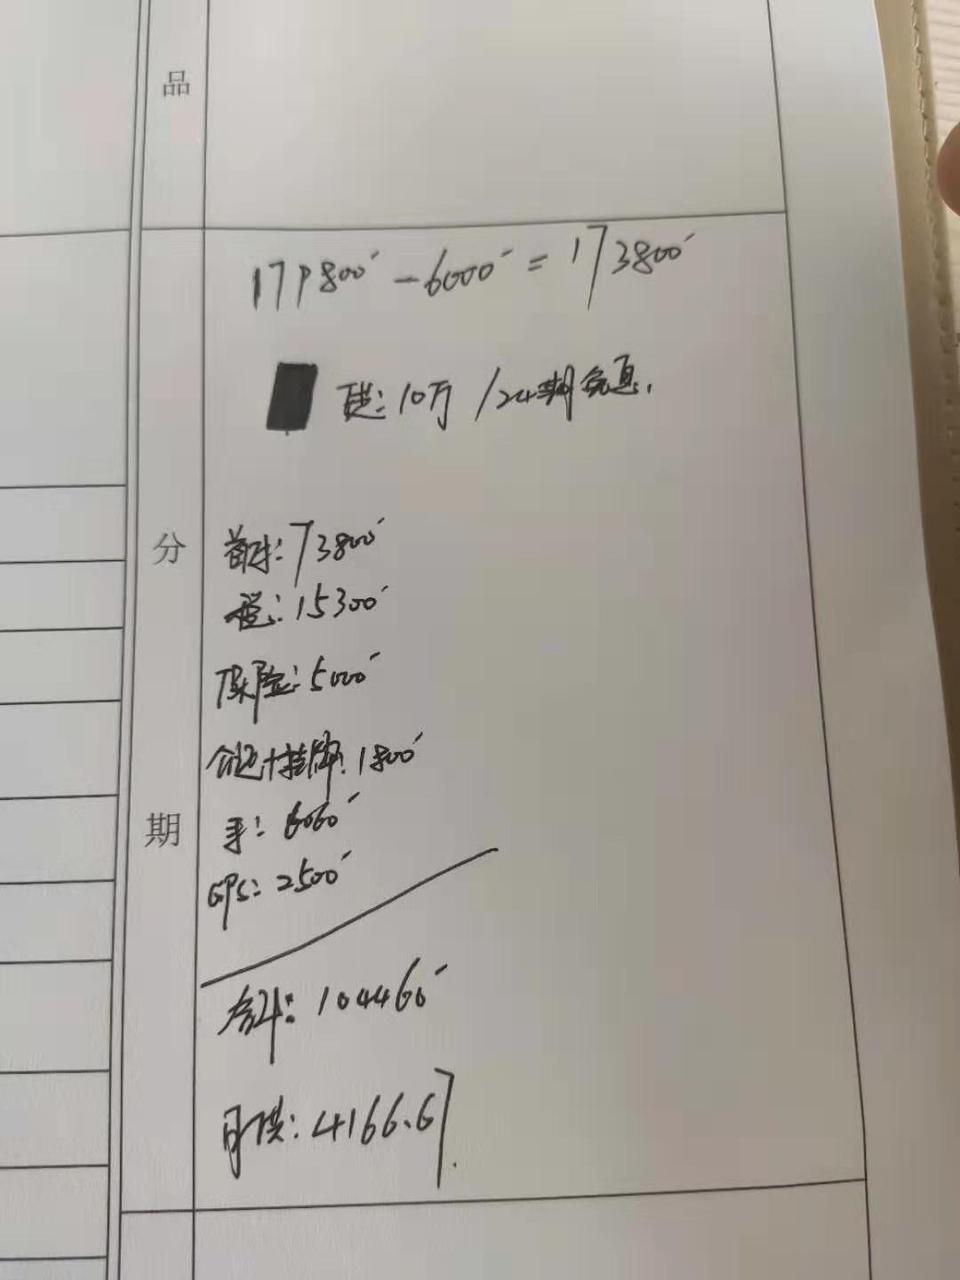 品
179800 - 6000 = 173800
贷: 10万 /24期免息.
分
首付: 73800
税: 15300
保险: 5000
+挂牌: 1800
期
手: 6060
GPS: 2500
合计: 104460
月供: 4166.67